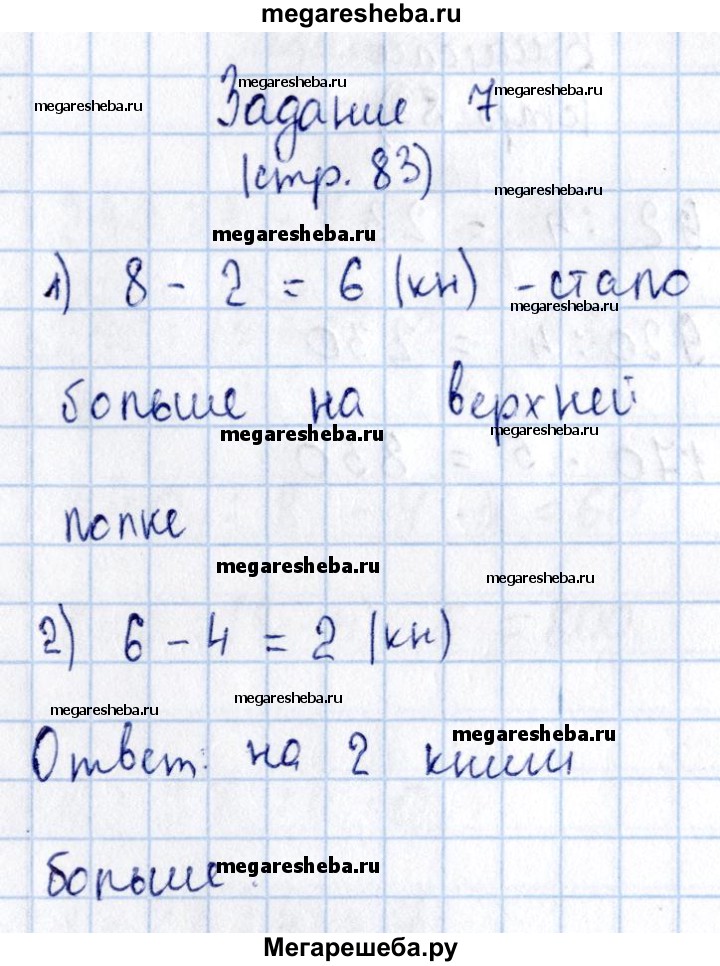 megaresheba.ru
megaresheba.ru
megaresheba.ru
megaresheba.ru
Задание 7
(стр. 83)
megaresheba.ru
megaresheba.ru
1) 8 - 2 = 6 (кн) - стало
megaresheba.ru
больше на верхней
megaresheba.ru
megaresheba.ru
полке
megaresheba.ru
megaresheba.ru
2) 6 - 4 = 2 (кн)
megaresheba.ru
megaresheba.ru
megaresheba.ru
Ответ: на 2 книги
больше.
megaresheba.ru
Мегарешеба.ру